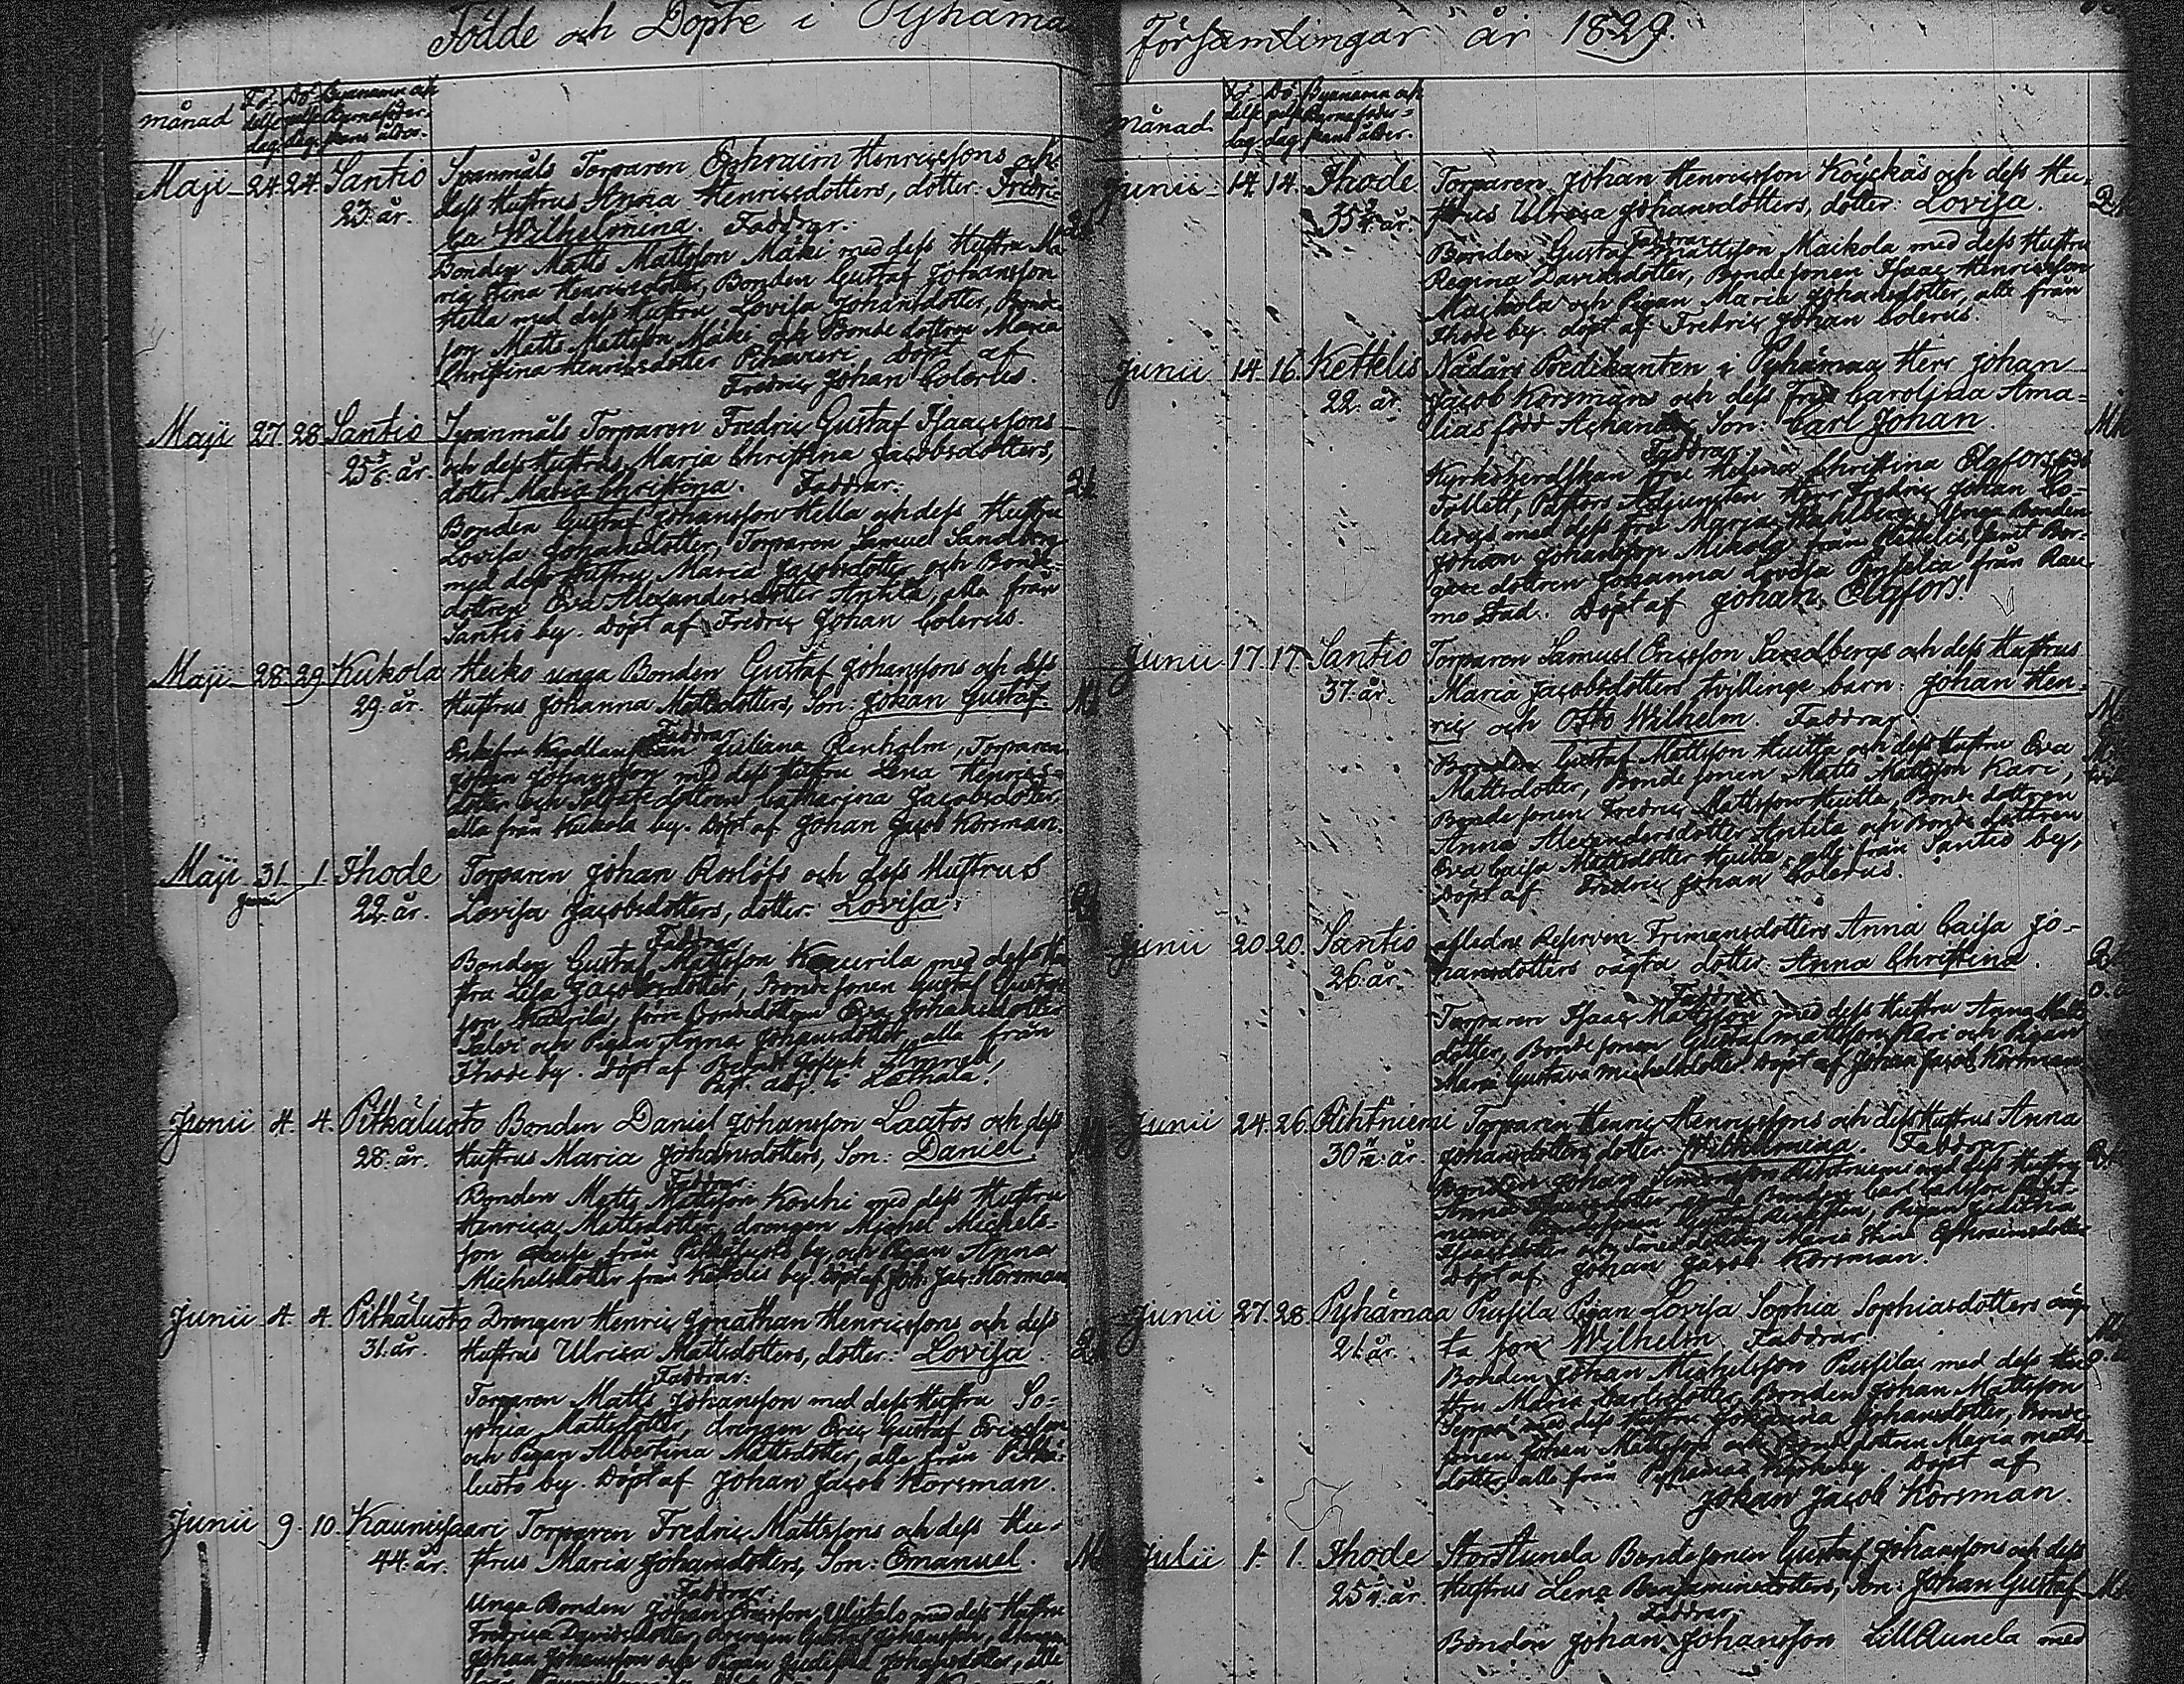 Födde och Döpte i Pyhämaa
månad Fö- delse dag. Dö- pelse dag. Byanamn och Barnaföder- skans ålder.
Maji 24. 24. Santio Svanmåls Torparen Ephraim Henricssons och
23. år. dess Hustrus Anna Henricsdotters, dotter: Fredri-
ca Wilhelmina. Faddrar.
Bonden Matts Mattsson Mäki med dess Hustru Ma-
ria Stina Henricsdotter, Bonden Gustaf Johansson
Hella med dess Hustru Lovisa Johansdotter, Bonde-
son Matts Mattsson Mäki och Bonde dottren Maria
Christina Henricsdotter döpt af
Fredric Johan Colerus.
Maji 27. 28. Santio Svanmåls Torparen Fredric Gustaf Isaacssons
25 5/6. år. och dess Hustrus Maria Christina Jacobsdotters,
dotter Maria Christina. Faddrar.
Bonden Gustaf Johansson Hella och dess Hustru
Lovisa Johansdotter, Torparen Samuel Sandberg
med dess Hustru Maria Jacobsdotter och Bonde-
dottren Eva Alexandersdotter Anttila, alla från
Santio by. Döpt af Fredric Johan Colerus.
Maji 28. 29. Kukola Heiko unga Bonden Gustaf Johanssons och dess
29. år. Hustrus Johanna Mattsdotters, Son: Johan Gustaf.
Faddrar
Juliana Renholm, Torparen
Johan Johansson med dess Hustru Lena Henrics-
dotter och Soldate dottren Catharina Jacobsdotter,
alla från Kukola by. Döpt af Johan Jacob Korsman.
Maji 31. 1. Ihode Torparen Johan Roslöfs och dess Hustrus
Junii 22. år. Lovisa Jacobsdotters, dotter: Lovisa.
Faddrar
Bonden Gustaf Mattsson Kaurila med dess Hu-
stru Lisa Jacobsdotter, Bonde sonen Gustaf Gustafs-
son Kaurila, förre Bondedottren Eva Johansdotter
och Pigan Anna Johansdotter, alla från
Ihode by. Döpt af Joseph
adj. i Laihala.
Junii 4. 4. Pitkäluoto Bonden Daniel Johansson Laatos och dess
28. år. Hustrus Maria Johansdotters, Son: Daniel.
Faddrar.
Bonden Matts Mattsson Kouhi med dess Hustru
Henrica Mattsdotter, drengen Michel Michels-
son från Pitkäluoto by, och Pigan Anna
Michelsdotter från Kettelis by. Döpt af Joh. Jac. Korsman.
Junii 4. 4. Pitkäluoto Drengen Henric Jonathan Henricssons och dess
31. år. Hustrus Ulrica Mattsdotters, dotter: Lovisa.
Faddrar.
Torparen Matts Johansson med dess Hustru So-
phia Mattsdotter, drengen Eric Gustaf Ericsson
och Pigan Albertina Mattsdotter, alla från Pitkä-
luoto by. Döpt af Johan Jacob Korsman.
Junii 9. 10. Kaunissaari Torparen Fredric Mattssons och dess Hu-
44. år. strus Maria Johansdotters, Son: Emanuel.
Faddrar.
Unga Bonden Johan Ericsson Ylistalo med dess Hustru
Fredrica Davidsdotter, drengen Gustaf Johansson, drengen
Johan Johansson och Pigan Johansdotter, alla
Församlingar år 1829.
månad. Fö- delse dag. Dö- pelse dag. Byanamn och Barnaföder- skans ålder.
Junii 14. 14. Ihode Torparen Johan Henricsson Köyckäs och dess Hu-
35 3/4. år. strus Ulrica Johansdotters, dotter: Lovisa.
Faddrar
Bonden Gustaf Mattsson Maikola med dess Hustru
Regina Davidsdotter, Bonde sonen Isaac Henricsson
Maikola och Pigan Maria Johansdotter, alla från
Ihode by. döpt af Fredric Johan Colerus.
Junii 14. 16. Kettelis Nådårs Predikanten i Pyhämaa Herr Johan
22. år. Jacob Korsmans och dess Fru Carolina Ama-
lias född Son: Carl Johan.
Faddrar.
Kyrkoherdskan Fru Helena Christina Elgfors född
Pastors Adjuncten Herr Fredric Johan Co-
lerus med dess Fru Maria Wahlberg, Unga Bonden
Johan Johansson Mikola från Kettelis, samt Bor-
gare dottren Johanna Lovisa från Rau-
mo Stad. Döpt af Johan Elgfors.
Junii 17. 17. Santio Torparen Samuel Ericsson Sandbergs och dess Hustrus
37. år. Maria Jacobsdotters tvillinge barn: Johan Hen-
ric och Otto Wilhelm. Faddrar.
Bonden Gustaf Mattsson Huitta och dess Hustru Eva
Mattsdotter, Bonde sonen Matts Mattsson Kari,
Bonde sonen Fredric Mattsson Huitta, Bonde dottren
Anna Alexandersdotter Anttila och Bonde dottren
Eva Caisa Mattsdotter Huitta, alla från Santio by,
Döpt af Fredric Johan Colerus.
Junii 20. 20. Santio afledne Reserven Frimansdotters Anna Caisa Jo-
26. år. hansdotters oägta dotter: Anna Christina.
Faddrar
Torparen Isaac Mattsson med dess Hustru Anna Matts-
dotter, Bonde sonen Gustaf Mattsson Kari och Pigan
Maria Gustava Michelsdotter Döpt af Johan Jacob Korsman
Junii 24. 26. Rihtniemi Torparen Henric Henricssons och dess Hustrus Anna
30 år. Johansdotters dotter: Wilhelmina. Faddrar
Bonden Johan Simonsson Rihtniemi med dess Hustru
Anna
Isaacsdotter och Maria Stina Ephraimsdotter
Döpt af Johan Jacob Korsman.
Junii 27. 28. Pyhämaa Pigan Lovisa Sophia Sophiasdotters oäg-
21. år. ta son Wilhelm. Faddrar
Bonden Johan Michelsson med dess Hu-
stru Maria Carlsdotter, Bonden Johan Mattsson
med dess Hustru Johanna Johansdotter, Bonde-
sonen Johan Mattsson och Bonde dottren Maria Matts-
dotter, alla från Pyhämaa Kyrkoby Döpt af
Johan Jacob Korsman.
Julii 1. 1. Ihode StorAunela Bondesonen Gustaf Johanssons och dess
25 år. Hustrus Lena Benjaminsdotters, Son: Johan Gustaf
Faddrar,
Bonden Johan Johansson LillAunela med